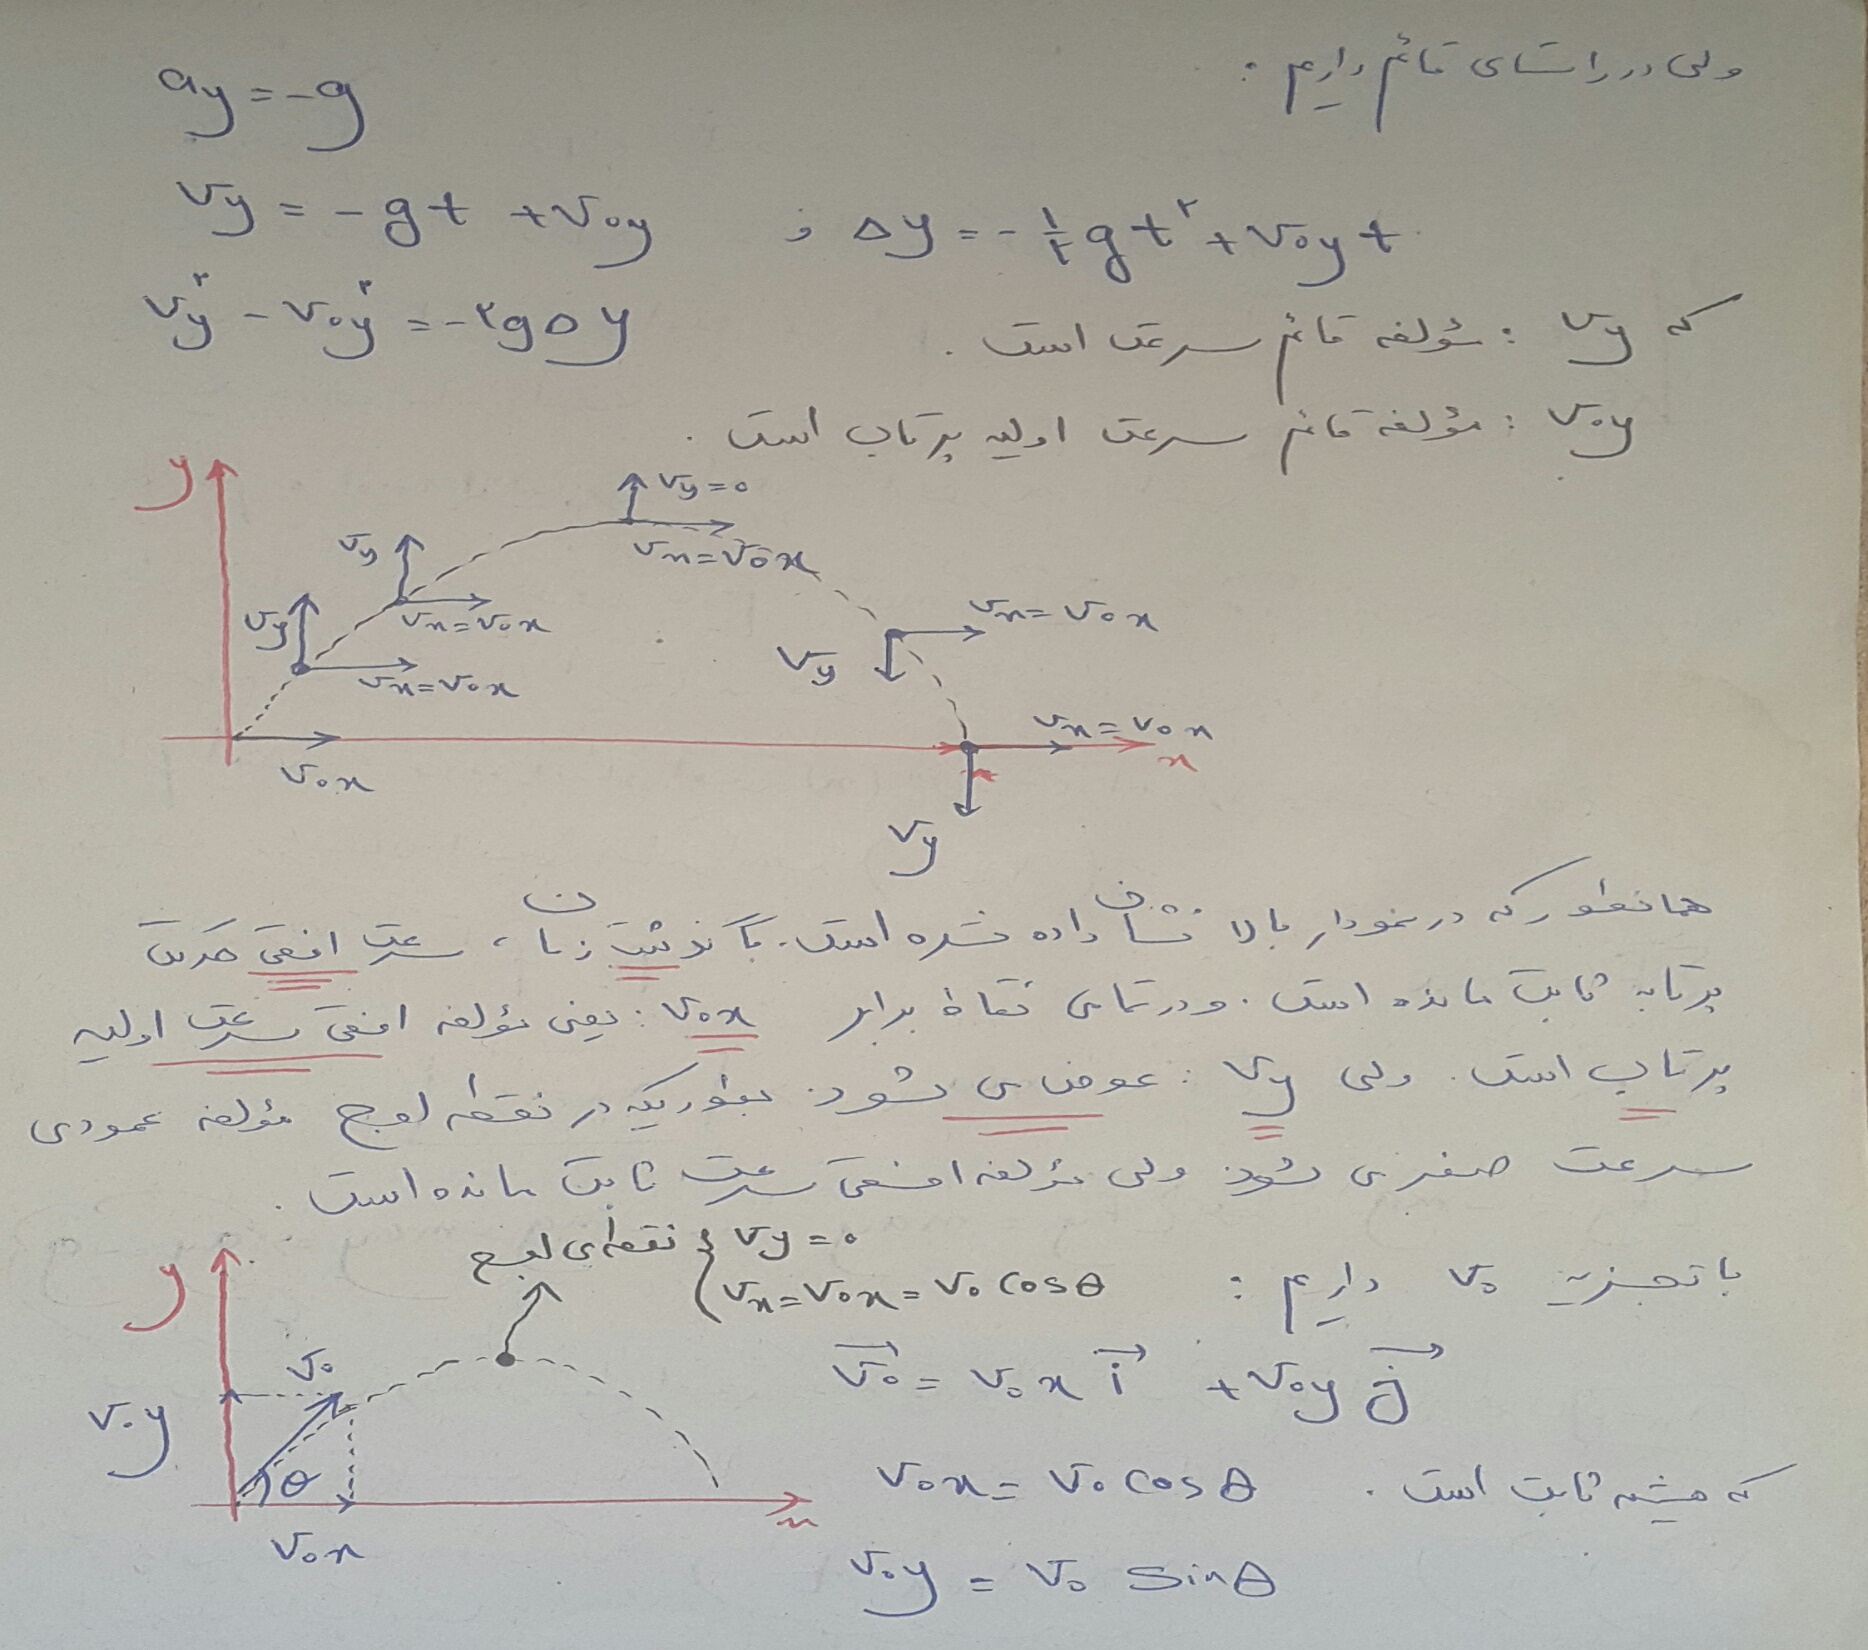 ولی در راستای قائم داریم :
ay = -g
vy = -gt + v₀y ; Δy = -½gt² + v₀yt
vy² - v₀y² = -۲gΔy
که vy : مؤلفه قائم سرعت است .
v₀y : مؤلفه قائم سرعت اولیه پرتاب است .
y
vy = ۰
vx = v₀x
vy
vx = v₀x
vy
vx = v₀x
vx = v₀x
vy
vx = v₀x
x
v₀x
vy
همانطور که در نمودار بالا نشان داده شده است. با گذشت زمان ، سرعت افقی حرکت
پرتابه ثابت مانده است . و در تمامی نقاط برابر v₀x : یعنی مؤلفه افقی سرعت اولیه
پرتاب است . ولی vy : عوض می شود. بطوریکه در نقطه اوج مؤلفه عمودی
سرعت صفر می شود ولی مؤلفه افقی سرعت ثابت مانده است .
با تجزیه v₀ داریم :
نقطه‌ی اوج { vy = ۰
vx = v₀x = v₀ cosθ
y
v₀
v₀y
θ
v₀x
x
v₀ = v₀x i + v₀y j
v₀x = v₀ cosθ که همیشه ثابت است .
v₀y = v₀ sinθ